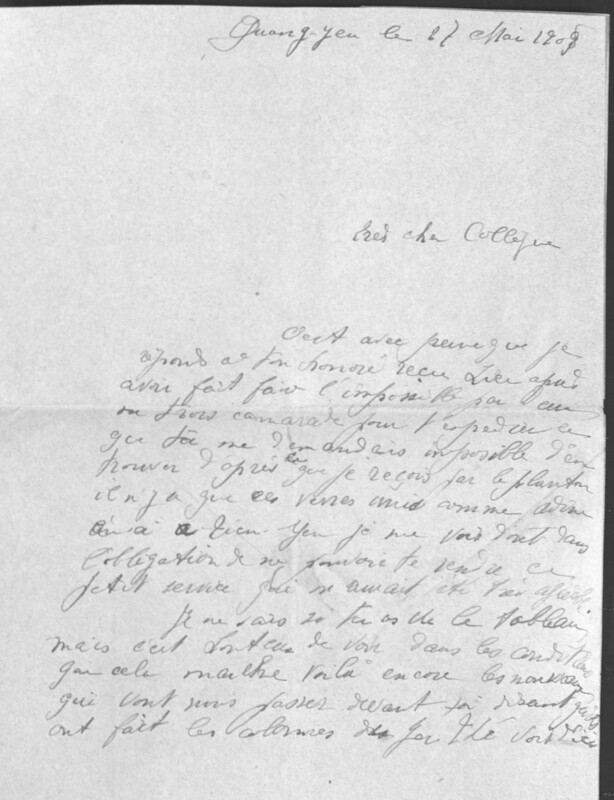 Quang-Yen le 17 Mai 1908
très cher Collègue
C'est avec peine que je
réponds a ton honoré reçu hier après
avoir fait faire l'impossible par un
ou trois camarade pour t'expedier ce
que tu me demandais impossible d'en
trouver d'après ce que je reçois par le planton
il n'y a que ces verres unis comme
à Tien-Yen je me vois dont dans
l'obligation de ne pouvoir te rendre ce
petit service qui m'aurait été très
Je ne sais si tu as vu le tableau
mais c'est honteux de voir dans les conditions
que cela marche voilà encore les nouveaux
qui vont nous passer devant
ont fait les colonnes du